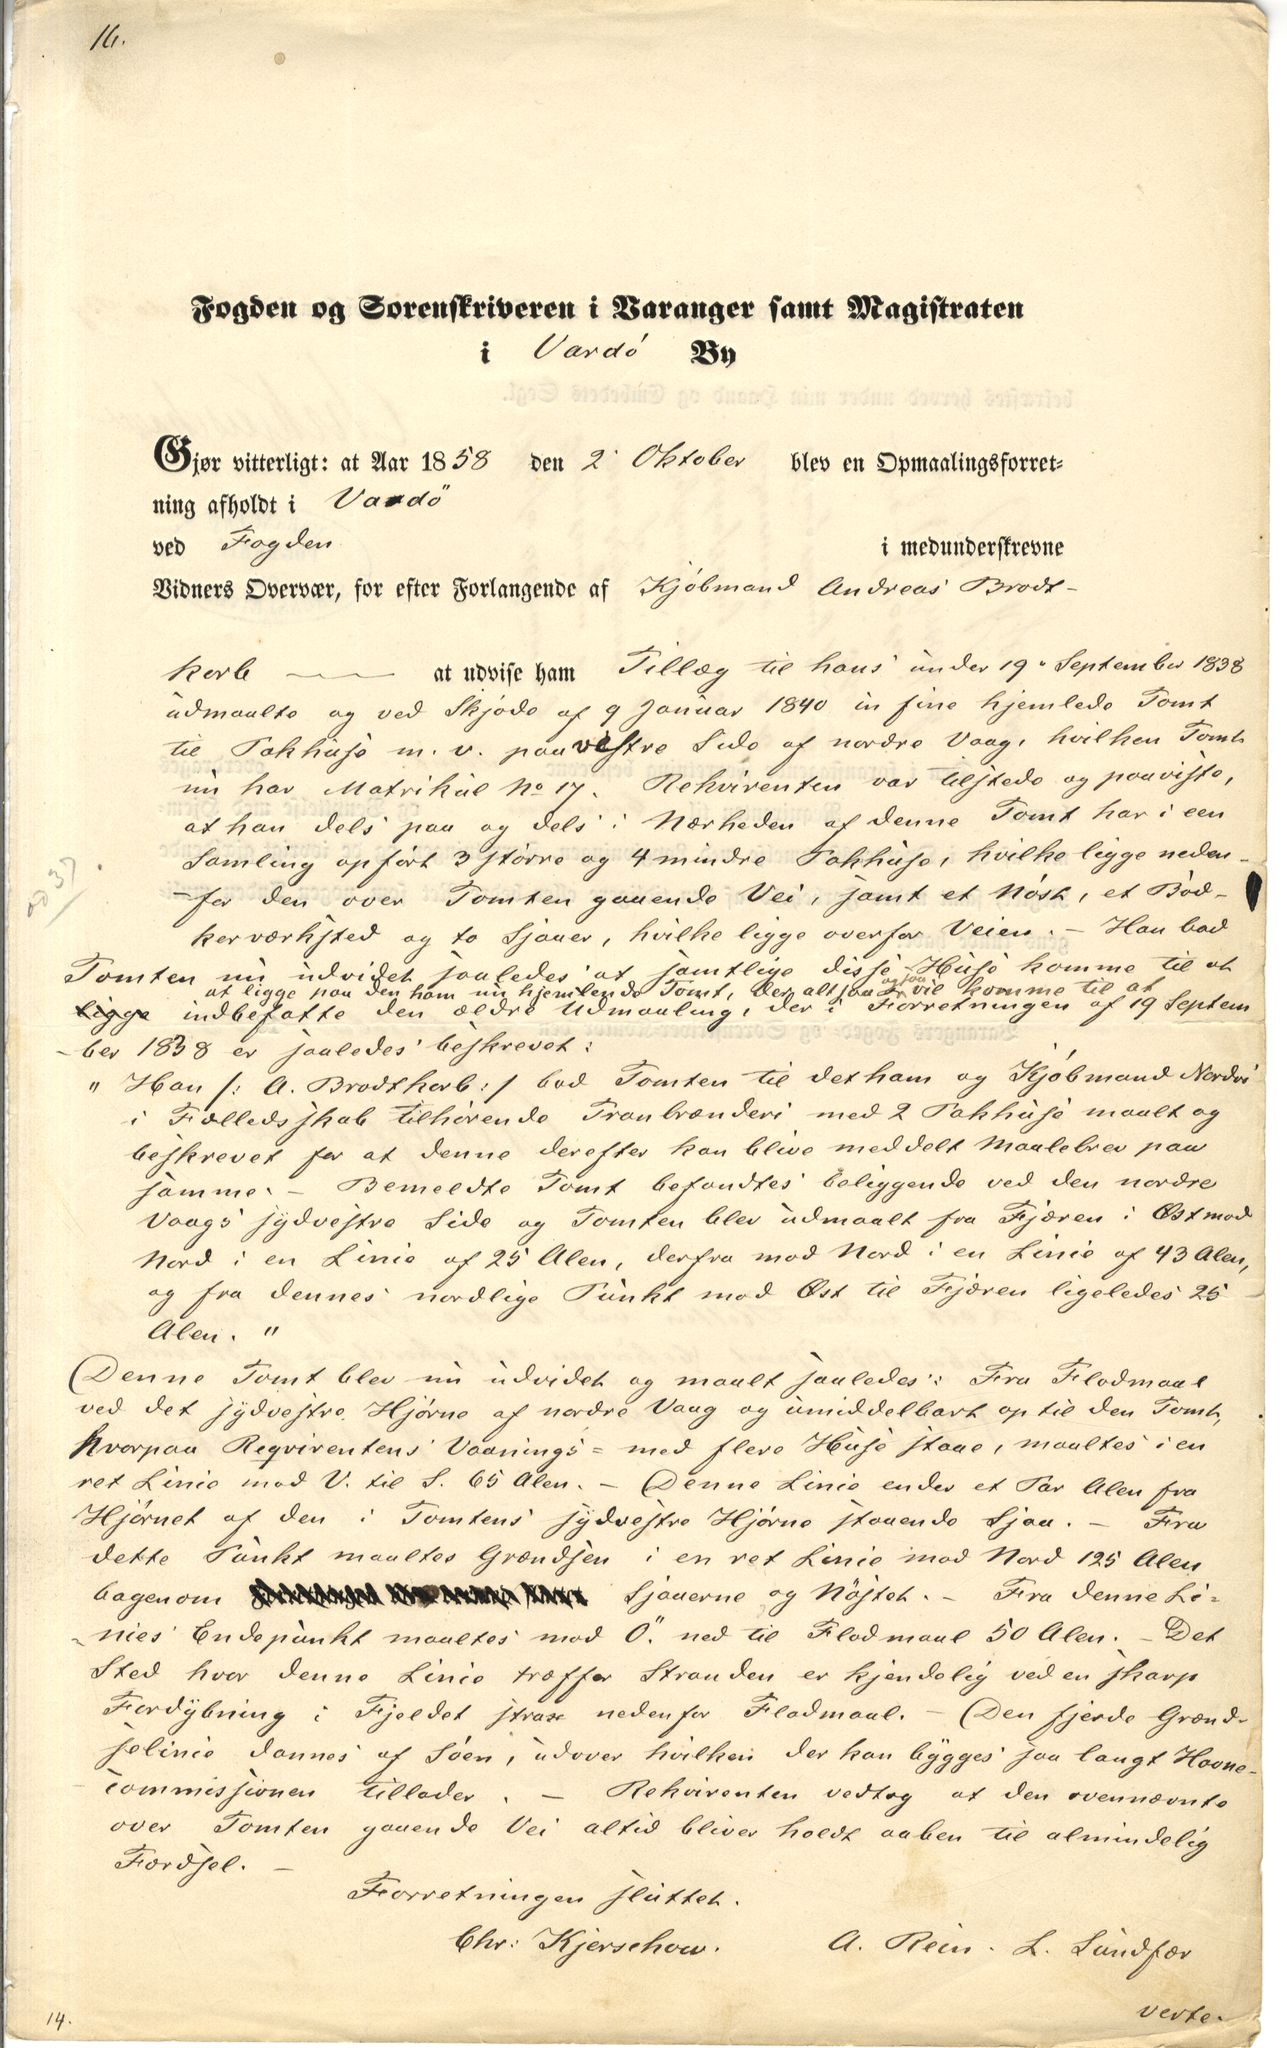 16.
Fogden og Sorenskriveren i Varanger samt Magistraten
i Vardö By
Gjør vitterligt: at Aar 1858 den 2' Oktober blev en Opmaalingsforret-
ning afholdt i Vardö
ved Fogden i medunderskrevne
Vidners Overvær, for efter Forlangende af Kjöbmand Andreas Brodt-
korb at udvise ham Tillæg til hans under 19. September 1838
udmaalte og ved Skjöde af 9 Januar 1840 in fine hjemlede Tomt
til Pakhuse m. v. paa vestre Side af nordre Vaag, hvilken Tomt
nu har Matrikul No 17. Rekvirenten var tilstede og paaviste,
at han dels paa og dels i Nærheden af denne Tomt har i een
Samling opfört 3 större og 4 mindre Pakhuse, hvilke ligge neden-
-for den over Tomten gaaende Vei, samt et Nöst, et Bød-
kerværksted og to Sjaaer, hvilke ligge overfor Veien. - Han bad
Tomten nu udvidet saaledes at samtlige disse Huse komme til at
at ligge paa den ham nu hjemlende Tomt, der altsaa vil komme til at
ligge indbefatte den ældre Udmaaling, der i Forretningen af 19 Septem
-ber 1838 er saaledes beskrevet:
" Han /: A. Brodtkorb :/ bad Tomten til det ham og Kjöbmand Nordvi
i Fælledsskab tilhörende Tranbrænderi med 2 Pakhuse maalt og
beskrevet for at denne derefter kan blive meddelt Maalebrev paa
samme. - Bemeldte Tomt befandtes beliggende ved den nordre
Vaags sydvestre Side og Tomten blev udmaalt fra Fjæren i Øst mod
Nord i en Linie af 25 Alen, derfra mod Nord i en Linie af 43 Alen,
og fra dennes nordlige Punkt mod Øst til Fjæren ligeledes 25
Alen. "
Denne Tomt blev nu udvidet og maalt saaledes: Fra Flodmaal
ved det sydvestre Hjörne af nordre Vaag og umiddelbart op til den Tomt,
hvorpaa Reqvirentens Vaanings= med flere Huse staae, maaltes i en
ret Linie mod V. til S. 65 Alen. - Denne Linie ender et Par Alen fra
Hjörnet af den i Tomtens sydvestre Hjörne staaende Sjaa. - Fra
dette Punkt maaltes Grændsen i en ret Linie mod Nord 125 Alen
bagenom Sjaaerne og Nöstet. - Fra denne Li-
-nies Endepunkt maaltes mod Ö. ned til Flodmaal 50 Alen. - Det
Sted hvor denne Linie træffer Stranden er kjendelig ved en skarp
Fordybning i Fjeldet strax nedenfor Flodmaal. - Den fjerde Grænd-
selinie dannes af Söen, udover hvilken der kan bygges saa langt Havne-
commissionen tillader. - Rekvirenten vedtog at den ovennævnte
over Tomten gaaende Vei altid bliver holdt aaben til almindelig
Færdsel. -
Forretningen sluttet.
Chr: Kjerschow. A. Rein. L. Lundfær
verte.
14.